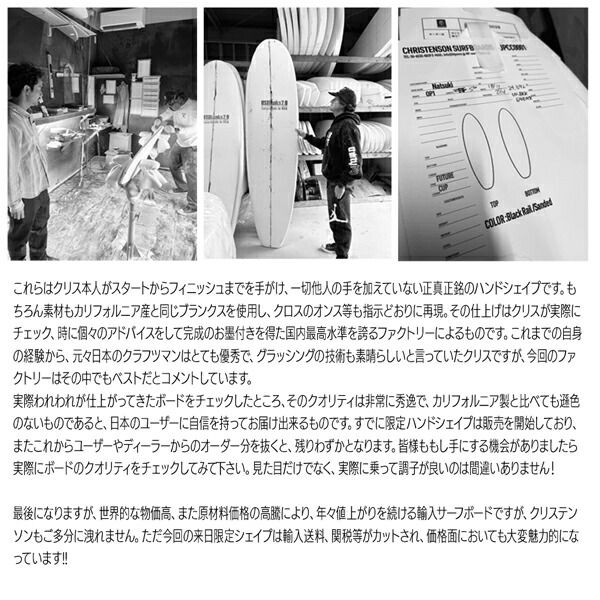 CHRISTENSON SURFBOARDS JPCC0001
Natsuki
OP1
FUTURE
CUP
TOP
BOTTOM
COLOR :Black Rail /Sanded
これらはクリス本人がスタートからフィニッシュまでを手がけ、一切他人の手を加えていない正真正銘のハンドシェイプです。も
ちろん素材もカリフォルニア産と同じブランクスを使用し、クロスのオンス等も指示どおりに再現。その仕上げはクリスが実際に
チェック、時に個々のアドバイスをして完成のお墨付きを得た国内最高水準を誇るファクトリーによるものです。これまでの自身
の経験から、元々日本のクラフツマンはとても優秀で、グラッシングの技術も素晴らしいと言っていたクリスですが、今回のファ
クトリーはその中でもベストだとコメントしています。
実際われわれが仕上がってきたボードをチェックしたところ、そのクオリティは非常に秀逸で、カリフォルニア製と比べても遜色
のないものであると、日本のユーザーに自信を持ってお届け出来るものです。すでに限定ハンドシェイプは販売を開始しており、
またこれからユーザーやディーラーからのオーダー分を抜くと、残りわずかとなります。皆様ももし手にする機会がありましたら
実際にボードのクオリティをチェックしてみて下さい。見た目だけでなく、実際に乗って調子が良いのは間違いありません!
最後になりますが、世界的な物価高、また原材料価格の高騰により、年々値上がりを続ける輸入サーフボードですが、クリステン
ソンもご多分に洩れません。ただ今回の来日限定シェイプは輸入送料、関税等がカットされ、価格面においても大変魅力的にな
っています!!